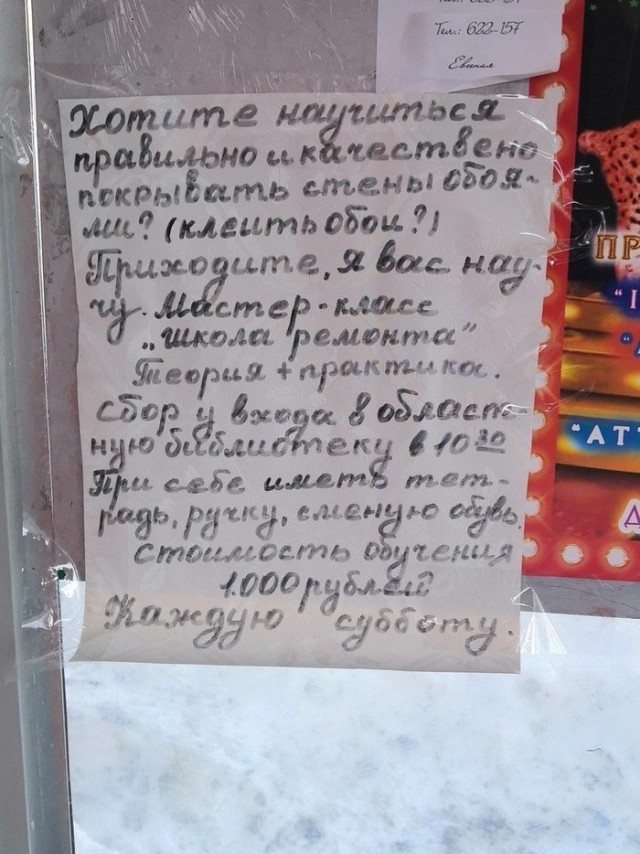 Тел.: 622-157
Хотите научиться
правильно и качествено
покрывать стены обоя-
ми? (клеить обои?)
Приходите, я вас нау-
чу. Мастер-класс
„школа ремонта"
Теория + практика.
Сбор у входа в област
ную библиотеку в 10 30
При себе иметь тет-
радь, ручку, сменую обувь.
Стоимость обучения
1.000 рублей
Каждую субботу.
ПР
"АТ